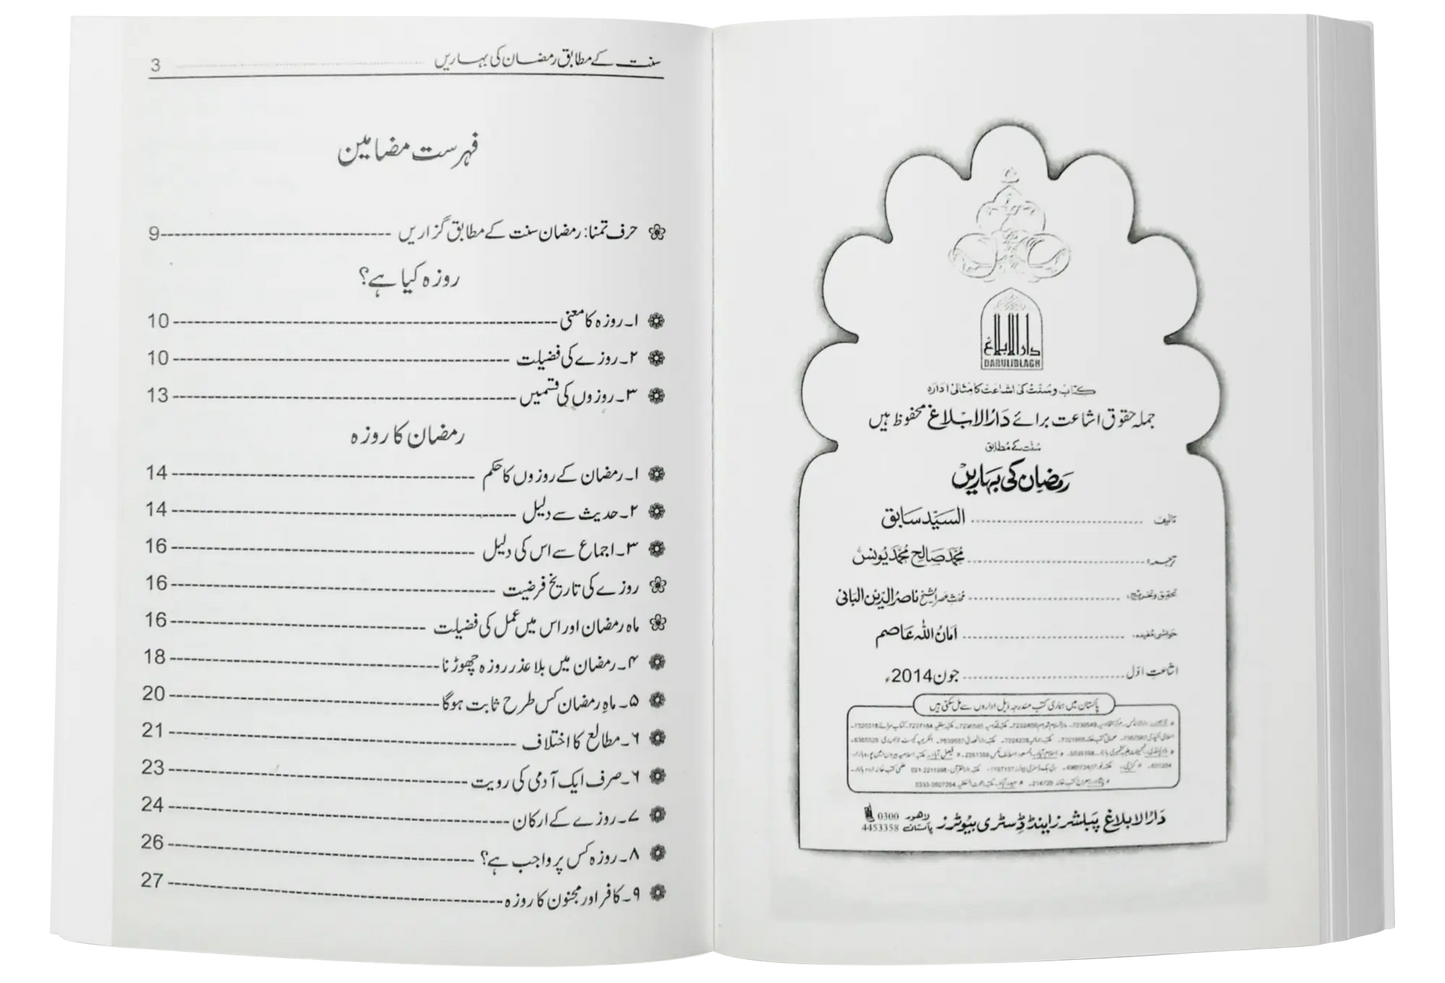 کتاب و سنت کی اشاعت کا مثالی ادارہ
DARULIBLAGH
دارالابلاغ
جملہ حقوق اشاعت برائے دارالابلاغ محفوظ ہیں
سنت کے مطابق
رمضان کی بہاریں
تالیف السید سابق
ترجمہ محمد صالح محمد یونس
تحقیق و تخریج ناصر الدین البانی
حواشی مفیدہ امان اللہ عاصم
اشاعت اول جون 2014ء
پاکستان میں ہماری کتب مندرجہ ذیل اداروں سے مل سکتی ہیں
دارالابلاغ پبلشرز اینڈ ڈسٹری بیوٹرز لاہور پاکستان 0300 4453358
سنت کے مطابق رمضان کی بہاریں 3
فہرست مضامین
حرف تمنا: رمضان سنت کے مطابق گزاریں 9
روزہ کیا ہے؟
۱۔ روزہ کا معنی 10
۲۔ روزے کی فضیلت 10
۳۔ روزوں کی قسمیں 13
رمضان کا روزہ
۱۔ رمضان کے روزوں کا حکم 14
۲۔ حدیث سے دلیل 14
۳۔ اجماع سے اس کی دلیل 16
روزے کی تاریخ فرضیت 16
ماہ رمضان اور اس میں عمل کی فضیلت 16
۴۔ رمضان میں بلا عذر روزہ چھوڑنا 18
۵۔ ماہِ رمضان کس طرح ثابت ہوگا 20
۶۔ مطالع کا اختلاف 21
۶۔ صرف ایک آدمی کی رویت 23
۷۔ روزے کے ارکان 24
۸۔ روزہ کس پر واجب ہے؟ 26
۹۔ کافر اور مجنون کا روزہ 27